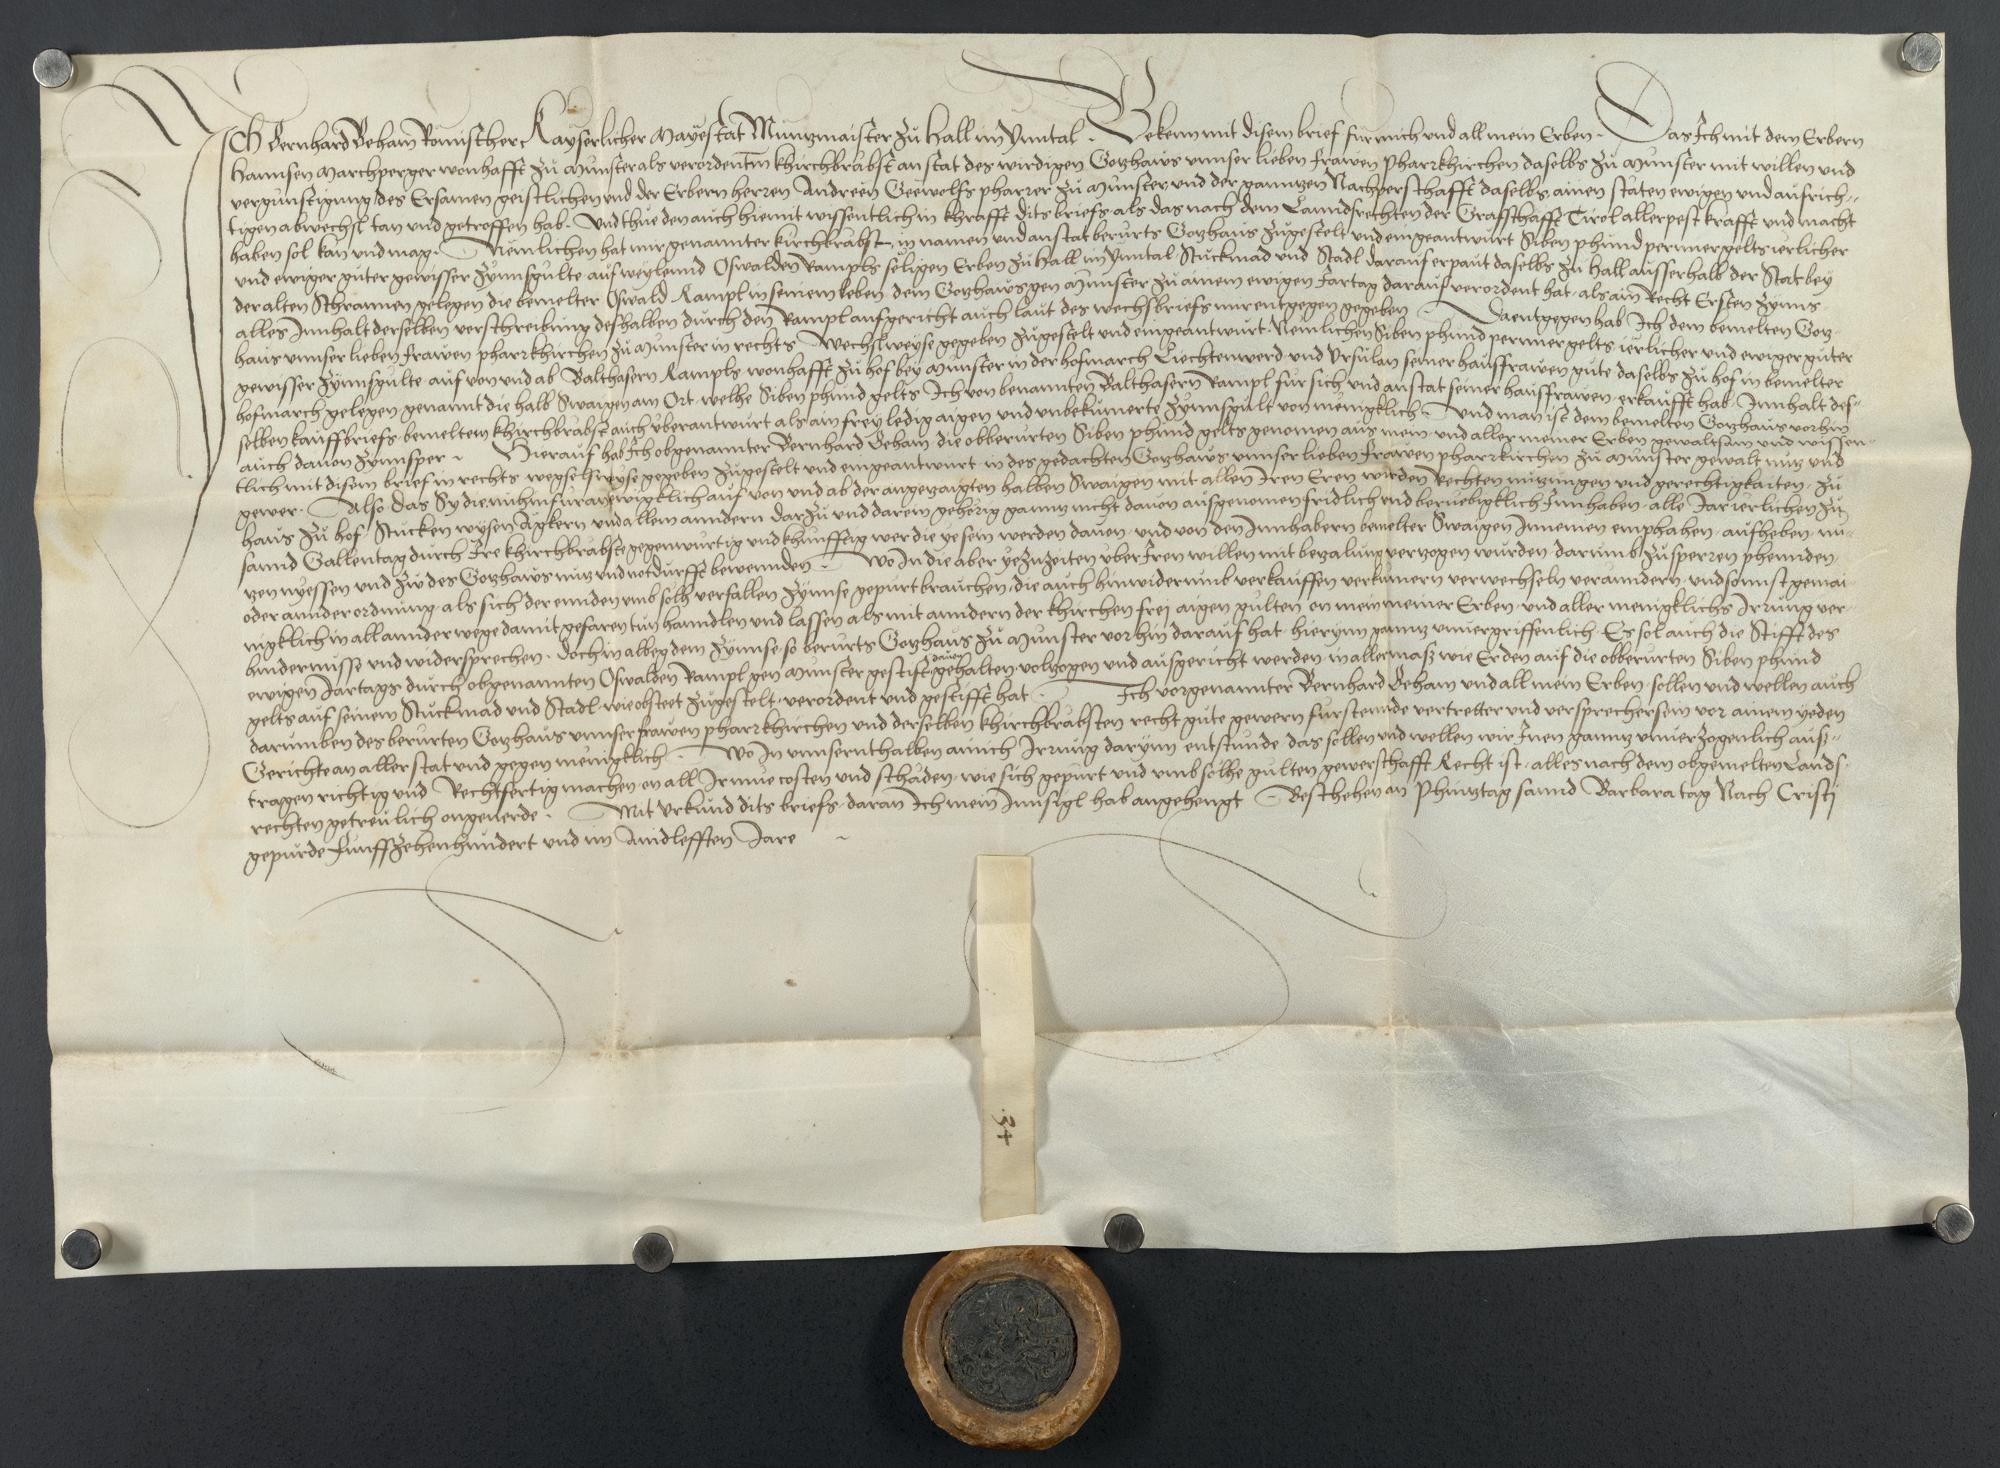 Ich Bernhard Beham Romischer Kayserlicher Mayestat Muntzmaister zu Hall im Ynntal · Bekenn mit disem brief fur mich und all mein Erben · Das Ich mit dem Erbern
Hannsen Marchperger wonhafft zu Munster als verordentm khirchbrabst anstat des wirdigen Gotzhaus unnser lieben frawen Pharrkhirchen daselbs zu Munster mit willen und
vergunstigung des Ersamen geistlichen und der Erbern herren Andreen Geewolfs pharrer zu Munster und der ganntzen Nachperschafft daselbs ainen stäten ewigen und aufrich-
tigen abwechsl tan und getroffen hab · Und thue den auch hiemit wissentlich in khrafft dits briefs als das nach dem Lanndsrechten der Grafschafft Tirol aller pest krafft und macht
haben sol kan und mag · Nemlichen hat mir genannter kirchbrabst in namen und anstat berurts Gotzhaus zugestelt und eingeantwurt Siben phund perner gelts ierlicher
und ewiger guter gewisser Zynnsgulte aus weylennd Oswalden Rampls seligen Erben zu Hall im Ynntal Stuckmad und Stadl darauf erpaut daselbs zu Hall ausserhalb der Stat bey
der alten Schrannen gelegen die bemelter Oswald Rampl in seinem leben dem Gotzhaus gen Munster zu ainem ewigen Jartag darauf verordent hat · als ain Recht Ersten Zynns ·
alles Innhalt derselben verschreibung deshalben durch den Rampl aufgericht auch laut des wechsbriefs mir entgegen gegeben · Da entgegen hab Ich dem bemelten Gotz-
haus unnser lieben frawen pharrkhirchen zu Munster in rechts Wechslweyse gegeben zugestelt und eingeantwurt · Nemlichen Siben phund perner gelts ierlicher und ewiger guter
gewisser Zynnsgulte auf von und ab Balthasern Rampls wonhafft zu hof bey Munster in der hofmarch Liechtenwerd und Ursulan seiner hausfrawen gute daselbs zu hof in bemelter
hofmarch gelegen genannt die halb Swaigen am Ort welhe Siben phund gelts Ich von benannten Balthasern Rampl fur sich und anstat seiner hausfrawen erkaufft hab · Innhalt des-
selben kauffbriefs bemeltem khirchbrabst auch uberantwurt als ain frey ledig aigen und unbekumerte Zynnsgult von menigklich · Und man ist dem bemelten Gotzhaus vorhin
auch davon Zynnsper · Hierauf hab Ich obgenannter Bernhard Beham die obberurten Siben phund gelts genomen aus mein und aller meiner Erben gewaltsam und wissen-
tlich mit disem brief in rechts wegselsweyse gegeben zugestelt und eingeantwurt in des gedachten Gotzhaus unnser lieben frawen pharrkirchen zu Munster gewalt nutz und
gewer · Also das Sy die nu hinfuran ewigklich auf von und ab der angezaigten halben Swaigen mit allen Iren Eren wirden Rechten nutzungen und gerechtigkaiten · zu
haus zu hof · Stucken wysen Agkern und allem anndern darzu und darein gehörig ganntz nicht davon ausgenomen fridlich und berueblich Innhaben · alle Jar ierlichen zu
sannd Gallentag durch Ire khirchbrabste gegenwurtig und khunfftig wer die ye sein werden davon und von den Innhabern bemelter Swaigen Innemen emphahen · aufheben · nu-
tzen nyessen und zu des Gotzhaus nutz und notdurfft bewennden · Wo In die aber ye zuzeiten uber Iren willen mit bezalung vertzogen wurden · darumb zusperren phennden ·
oder annder ordnung als sich der ennden umb solh verfallen Zynnse gepurt brauchen · die auch hinwiderumb verkauffen verkumern verwechseln veranndern · und sonnst gemai-
nigklich in all annder wege damit gefaren tun hanndlen und lassen als mit anndern der khirchen frei aigen gulten on mein meiner Erben und aller menigklichs Irrung ver-
hindernisse und widersprechen · doch in albeg dem Zynnse so berurts Gotzhaus zu Munster vorhin darauf hat hierynn ganntz unuergriffenlich · Es sol auch die Stifft des
ewigen Jartags durch obgenannten Oswalden Rampl gen Munster gestift davon gehalten volzogen und ausgericht werden in allermaß wie Er den auf die obberurten Siben phund
gelts auf seinem Stuckmad und Stadl wie obsteet zugestelt · verordent und gestifft hat · Ich vorgenannter Bernhard Beham und all mein Erben sollen und wellen auch
darumben des berurten Gotzhaus unnser frawen pharrkhirchen und derselben khirchbrabsten recht gute gewern furstennde vertretter und versprecher sein vor ainem yeden
Gerichte an aller stat und gegen menigklich · Wo In unnsernthalben ainich Irrung darynn entstunde das sollen und wellen wir Inen ganntz unuerzogenlich auß-
tragen richtig und Rechtfertig machen on all Ir mue costen und schäden · wie sich gepurt und umb solhe gulten gewerschafft Recht ist · alles nach dem obgemelten Lands-
rechten getreulich ongeuerde · Mit Urkund dits briefs daran Ich mein Innsigl hab angehengt · Beschehen an Phintztag sannd Barbara tag Nach Cristj
gepurde Funffzehenhundert und im Aindlefften Jare
34